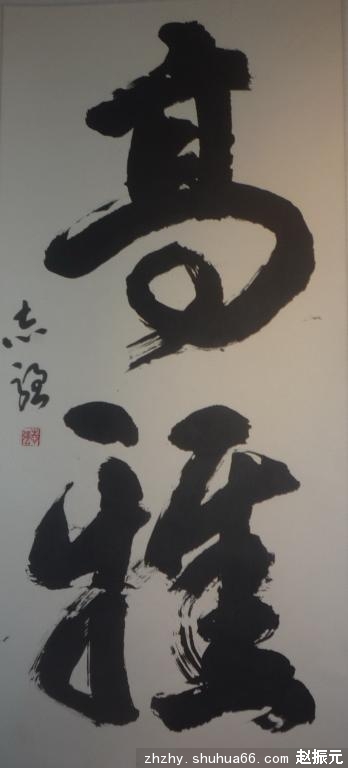 高雅
志强
zhzhy.shuhua66.com 赵振元